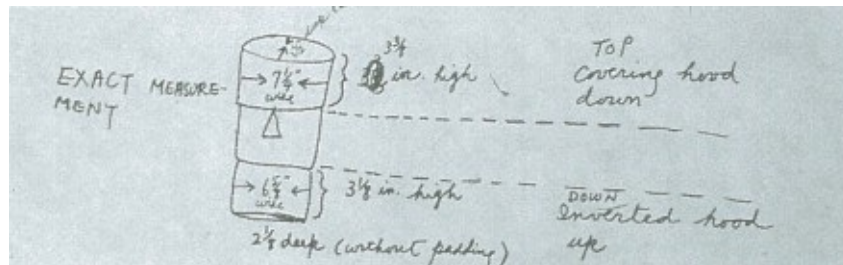 3 3/4
TOP
EXACT MEASURE-
MENT
7 1/4" wide
in. high
Covering hood
down
6 5/8" wide
3 1/8 in. high
DOWN
Inverted hood
up
2 1/8 deep (without padding)